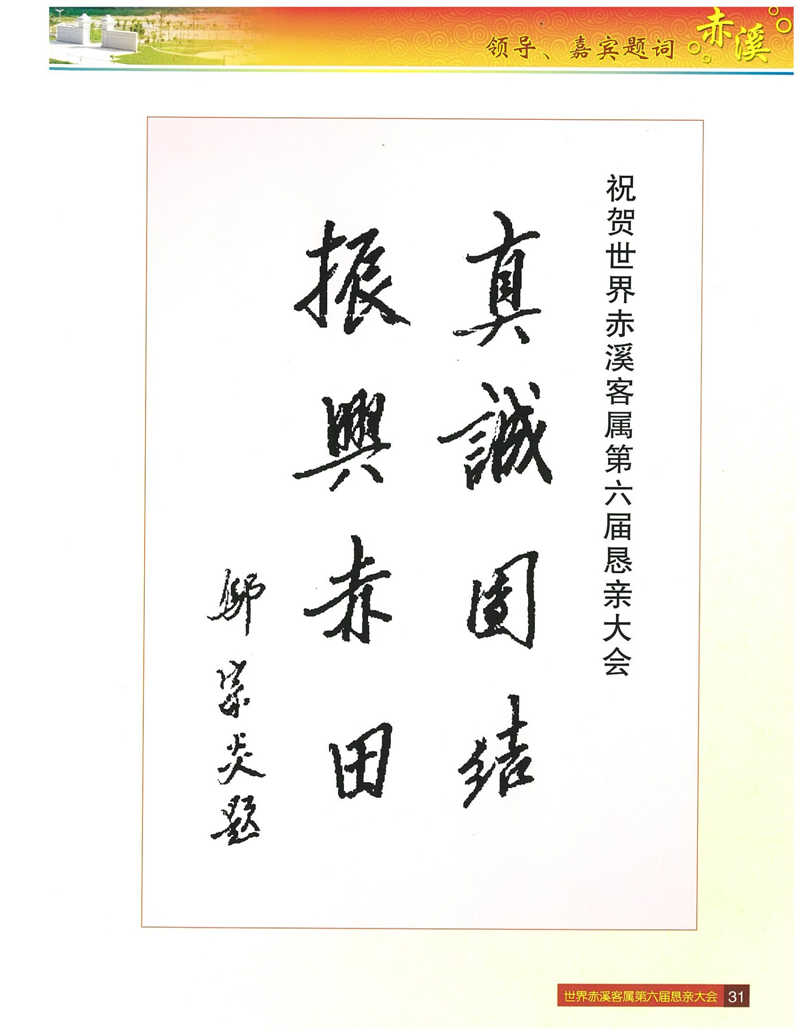 领导、嘉宾题词 赤溪
祝贺世界赤溪客属第六届恳亲大会
真誠團結
振興赤田
宗炎题
世界赤溪客属第六届恳亲大会 31